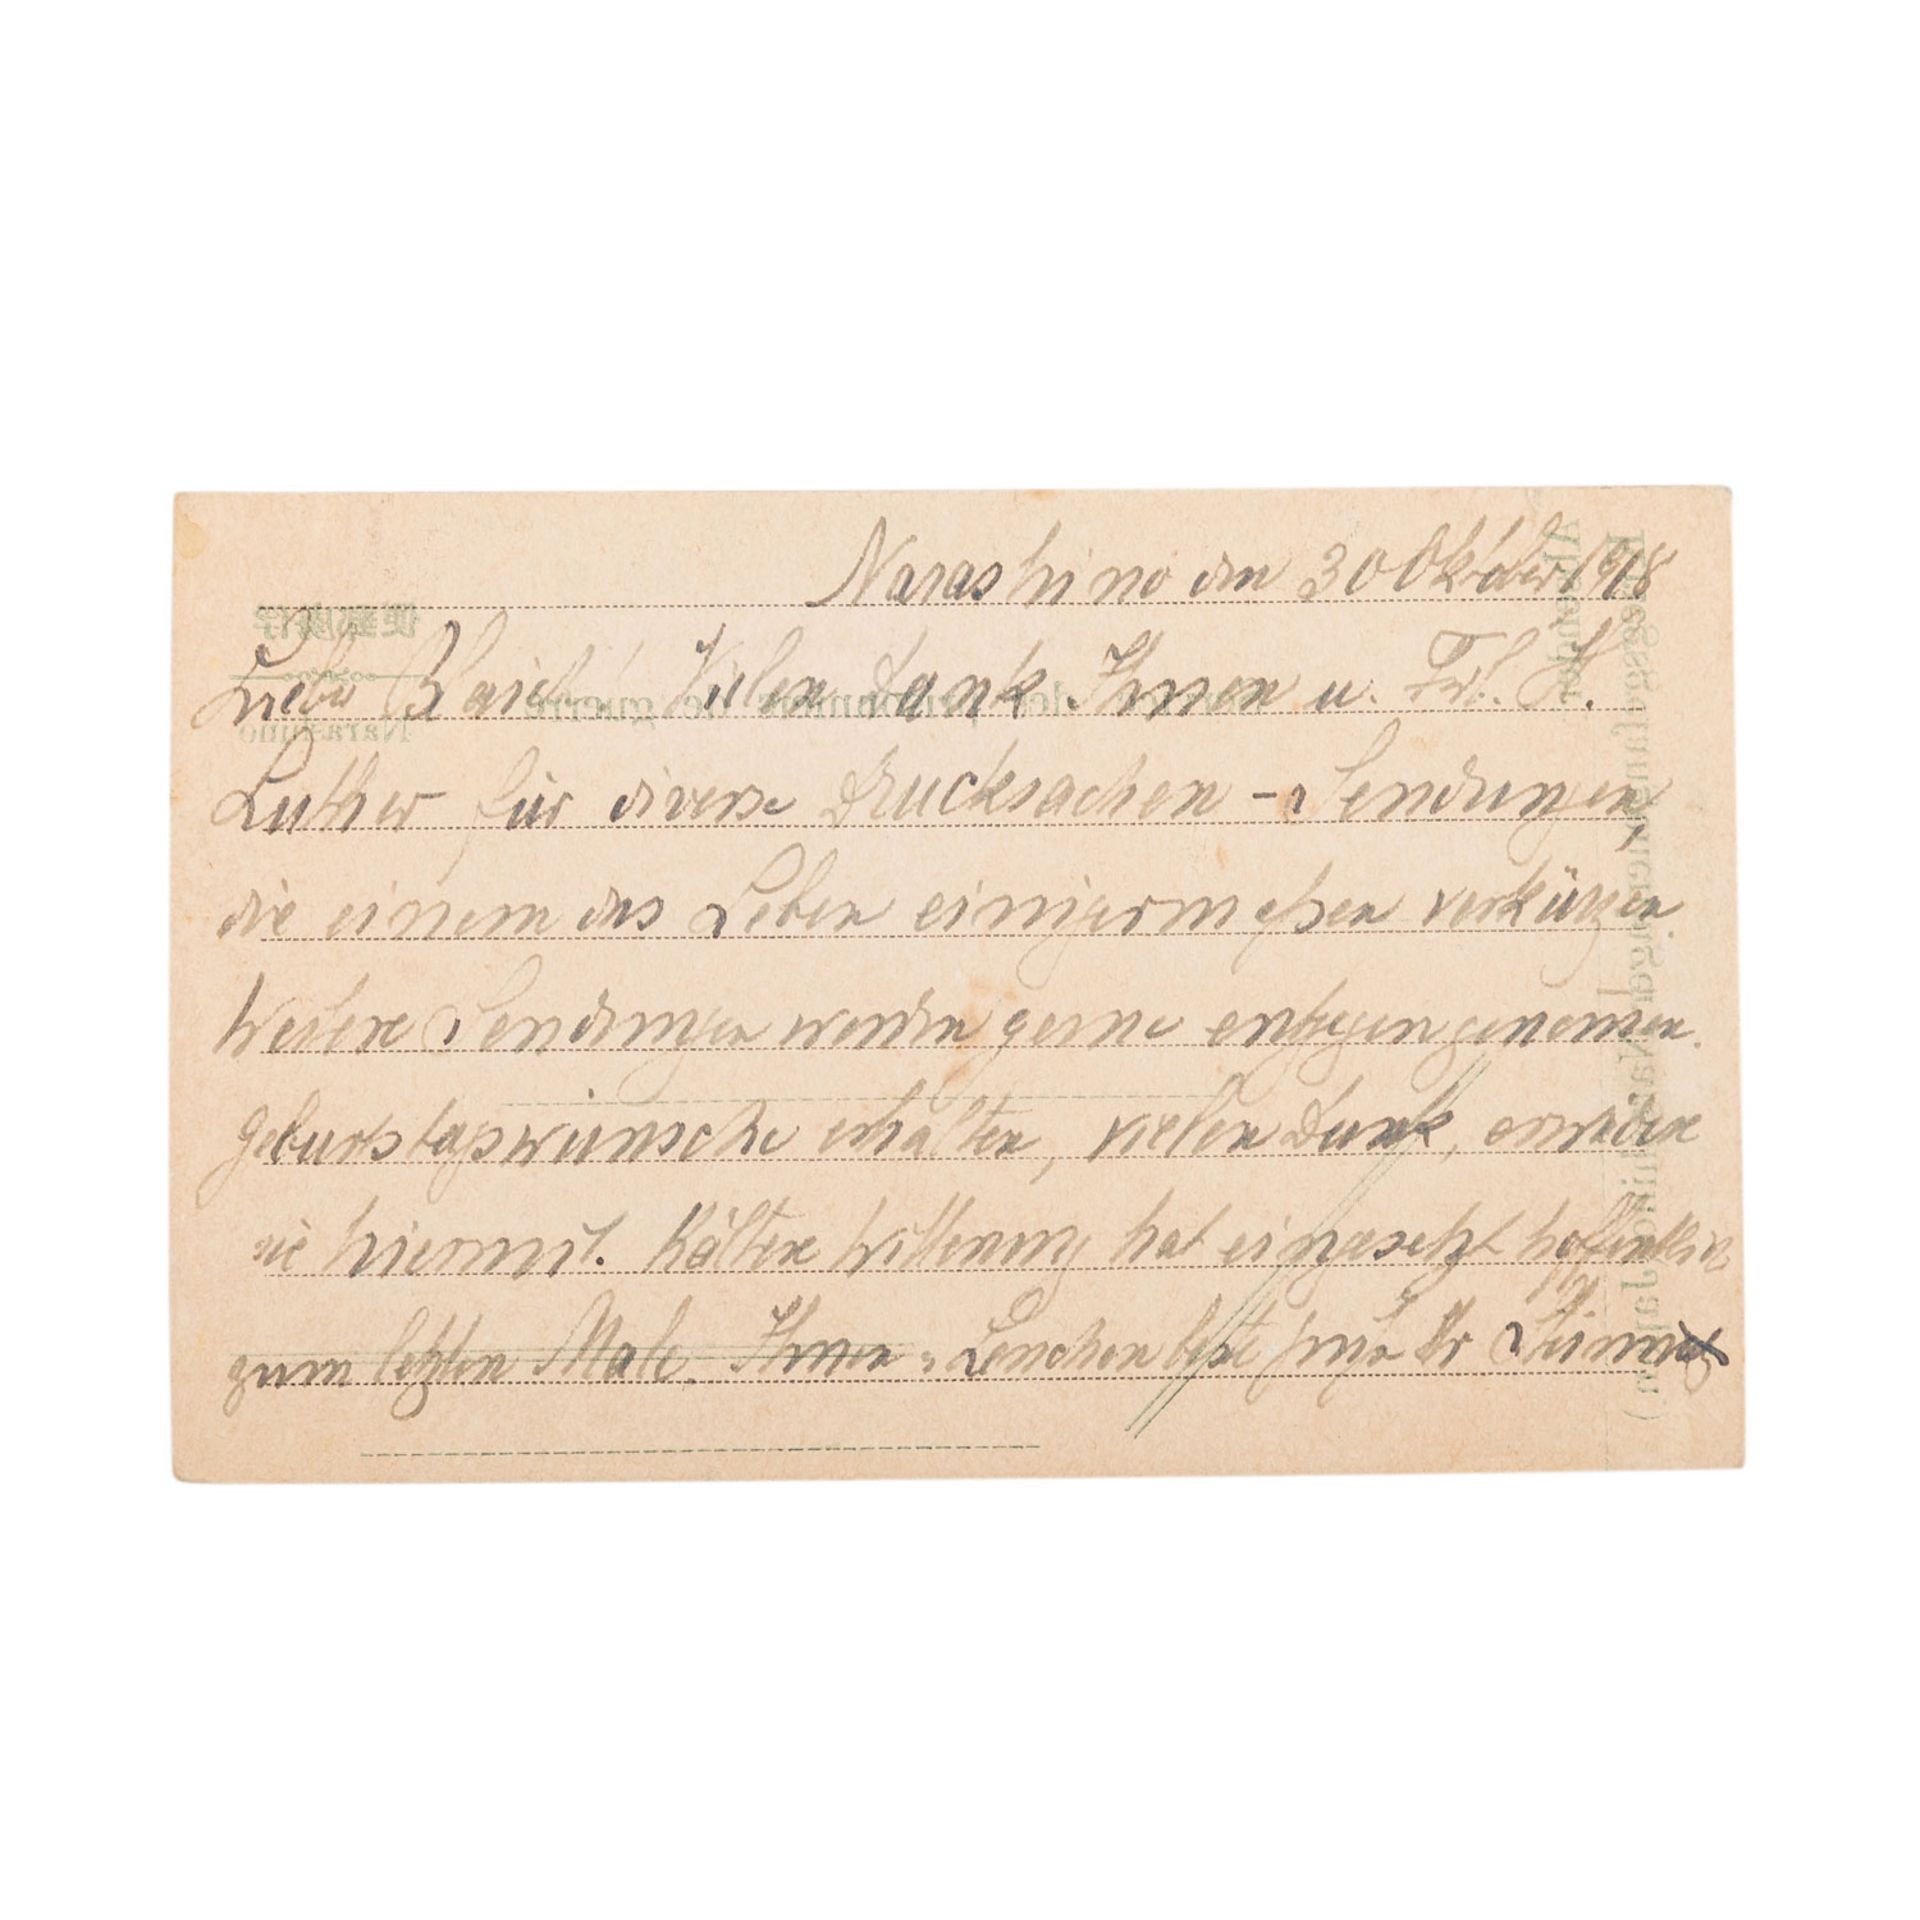 Narashino den 30 Oktober 1918
Liebe Vielen Dank Ihnen u. Frl. H.
Luther für diverse Drucksachen - Sendungen,
die einem das Leben einigermaßen verkürzen
Weitere Sendungen werden gerne entgegengenomen.
Geburtstagswünsche erhalten, vielen Dank, erwidere
sie hiermit. Kältere Witterung hat eingesetzt hoffentlich
zum letzten Male. Ihnen u. Lenchen beste Grüße Ihr